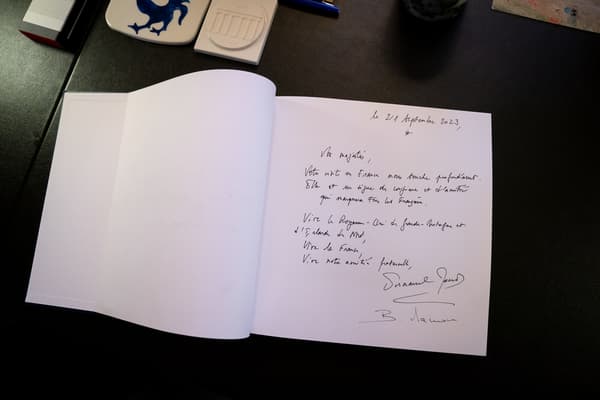 le 21 Septembre 2023,
Vos majestés,
Votre visite en France nous touche profondément.
Elle est un signe de confiance et d'amitié
qui marquera tous les Français.
Vive le Royaume-Uni de Grande-Bretagne et
d'Irlande du Nord,
Vive la France,
Vive notre amitié fraternelle,
Emmanuel Macron
B Macron